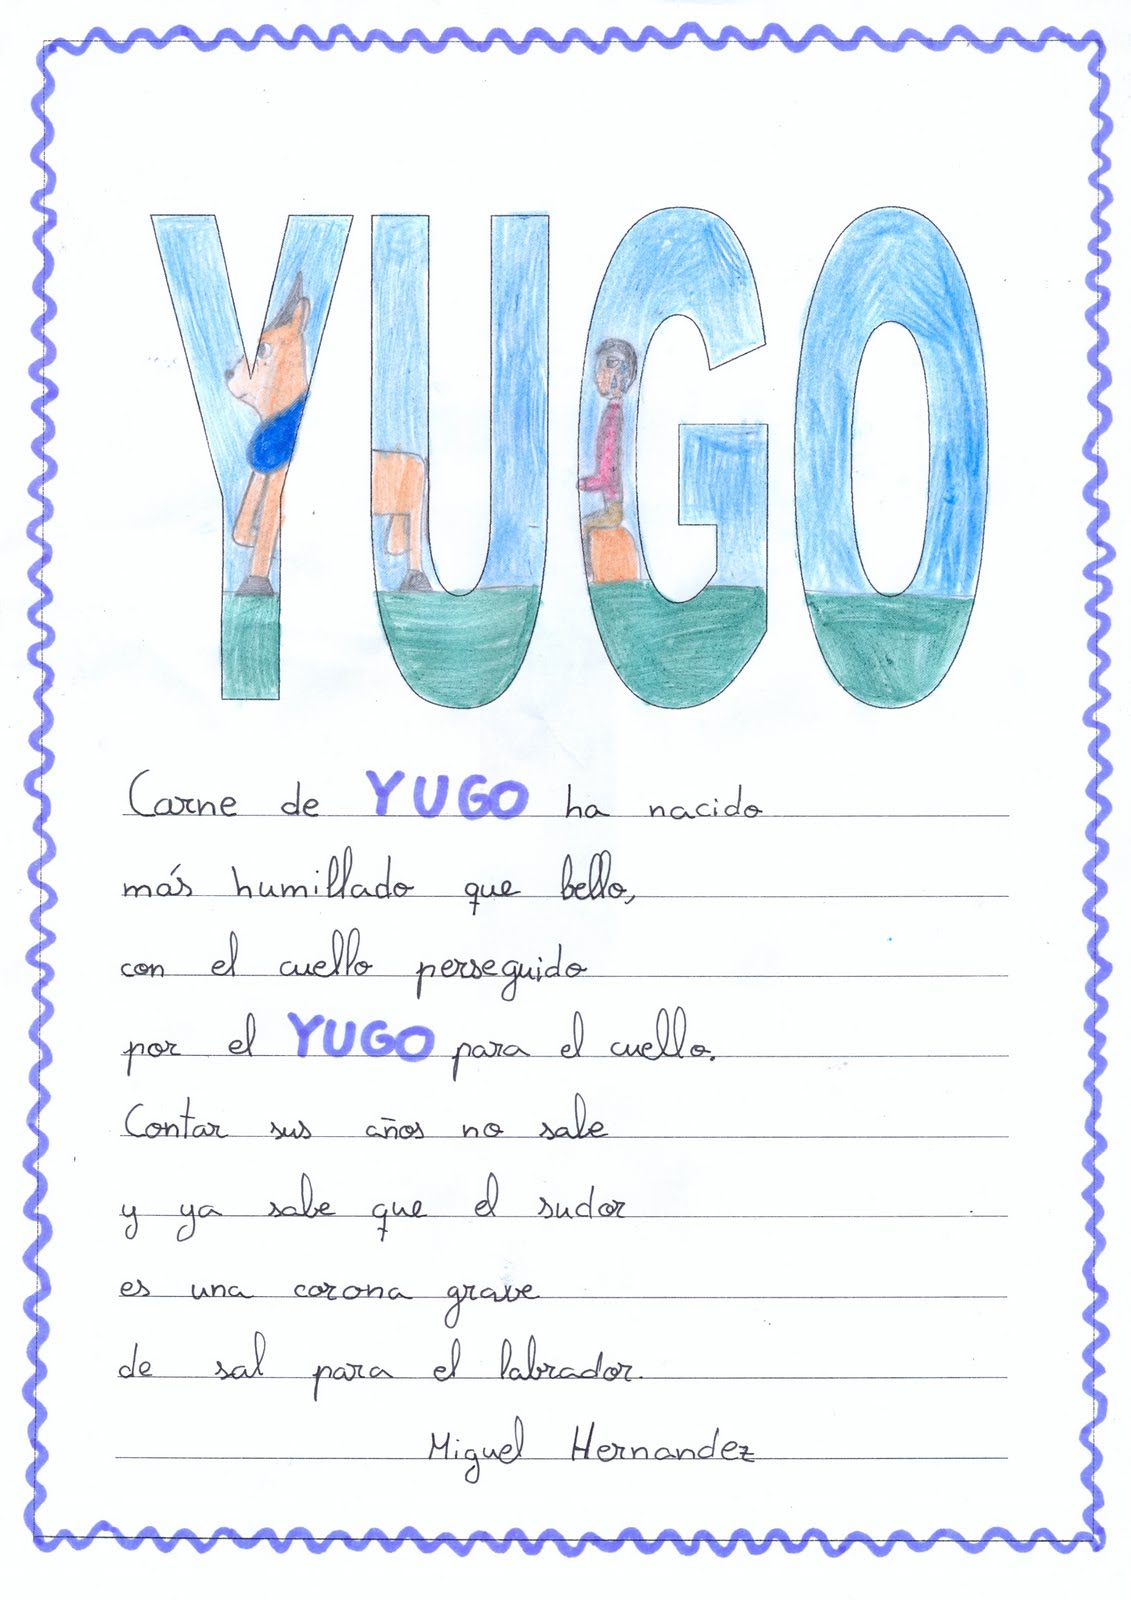 YUGO
Carne de YUGO ha nacido
más humillado que bello,
con el cuello perseguido
por el YUGO para el cuello.
Contar sus años no sabe
y ya sabe que el sudor
es una corona grave
de sal para el labrador.
Miguel Hernandez